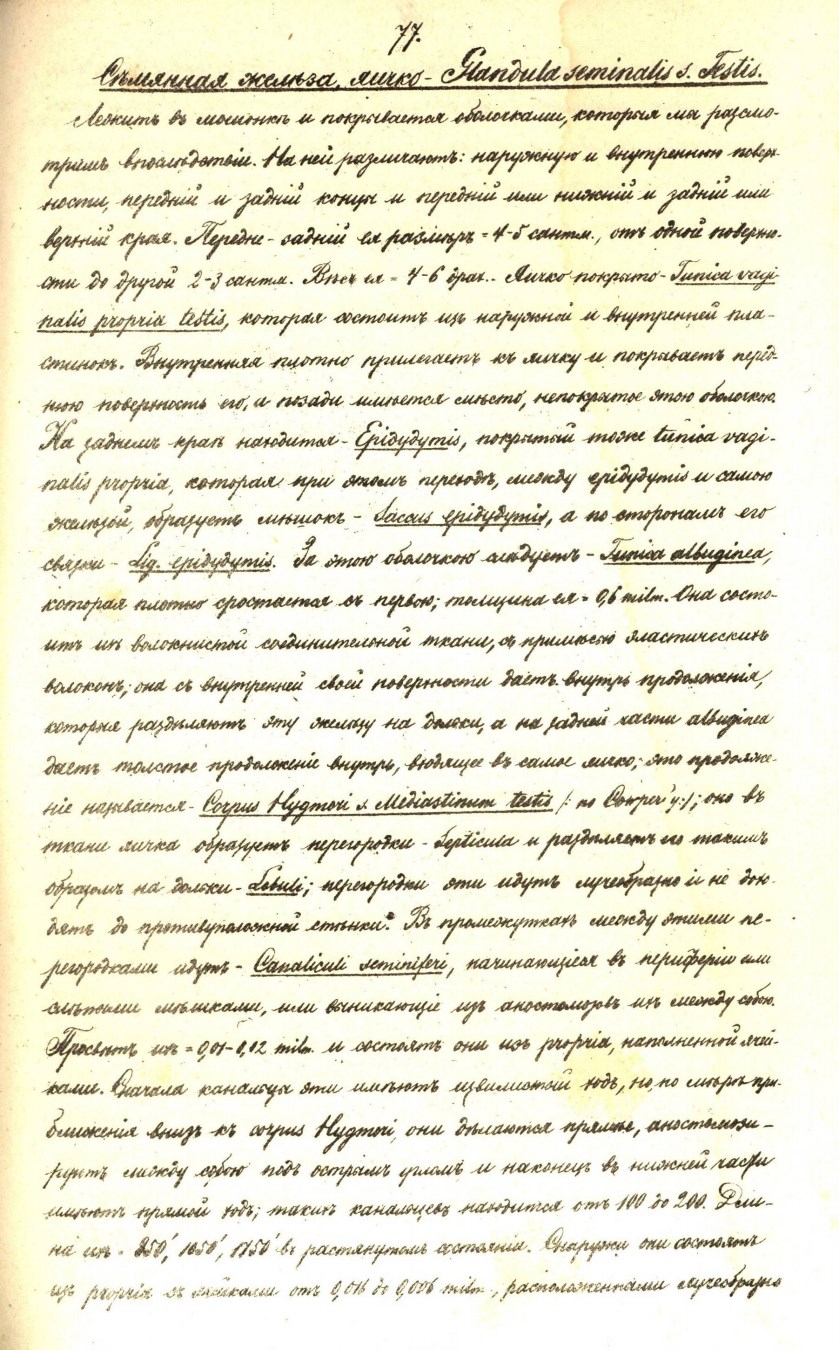 77.
Сѣмянная желѣза, яичко - Glandula seminalis s. Testis.
Лежитъ въ мошонкѣ и покрывается оболочками, которыя мы разсмо-
тримъ впослѣдствіи. На ней различаютъ: наружную и внутреннюю поверх-
ности, передній и задній концы и передній или нижній и задній или
верхній края. Передне-задній ея размѣръ = 4-5 сантм., отъ одной поверхно-
сти до другой 2-3 сантм. Вѣсъ ея = 4-6 драх.. Яичко покрыто - Tunica vagi
nalis propria testis, которая состоитъ изъ наружной и внутренней пла-
стинокъ. Внутренняя плотно прилегаетъ къ яичку и покрываетъ перед-
нюю поверхность его, и позади имѣется мѣсто, непокрытое этою оболочкою.
На заднемъ краѣ находится - Epidydymis, покрытый тоже tunica vagi-
nalis propria, которая при этомъ переходѣ, между epidydymis и самою
желѣзой, образуетъ мѣшокъ - Saccus epidydymis, а по сторонамъ его
связки - Lig. epidydymis. За этою оболочкою слѣдуетъ - Tunica albuginea,
которая плотно сростается съ первою; толщина ея = 0,6 milm. Она состо-
итъ изъ волокнистой соединительной ткани, съ примѣсью эластическихъ
волоконъ; она съ внутренней своей поверхности даетъ внутрь продолженія,
которыя раздѣляютъ эту желѣзу на дольки, а на задней части albuginea
даетъ толстое продолженіе внутрь, входящее въ самое яичко; это продолже-
ніе называется - Corpus Hygmori s. Mediastinum testis /: по Cowper'у:/; оно въ
ткани яичка образуетъ перегородки - Septicula и раздѣляетъ его такимъ
образомъ на дольки - Lobuli; перегородки эти идутъ лучеобразно и не дохо-
дятъ до противуположной стѣнки. Въ промежуткахъ между этими пе-
регородками идутъ - Canaliculi seminiferi, начинающіеся въ периферіи или
слѣпыми мѣшками, или возникающіе изъ аностомозовъ ихъ между собою.
Просвѣтъ ихъ = 0,01-0,12 milm. и состоятъ они изъ propria, наполненной ячей-
ками. Сначала канальцы эти имѣютъ извилистый ходъ, но, по мѣрѣ при-
ближенія внизъ къ corpus Hygmori, они дѣлаются прямѣе, аностомози-
руютъ между собою подъ острымъ угломъ и наконецъ въ нижней части
имѣютъ прямой ходъ; такихъ канальцевъ находится отъ 100 до 200. Дли-
на их = 1050', 1750' въ растянутомъ состояніи. Снаружи они состоятъ
изъ propria съ ячейками отъ 0,016 до 0,006 milm., расположенными лучеобразно